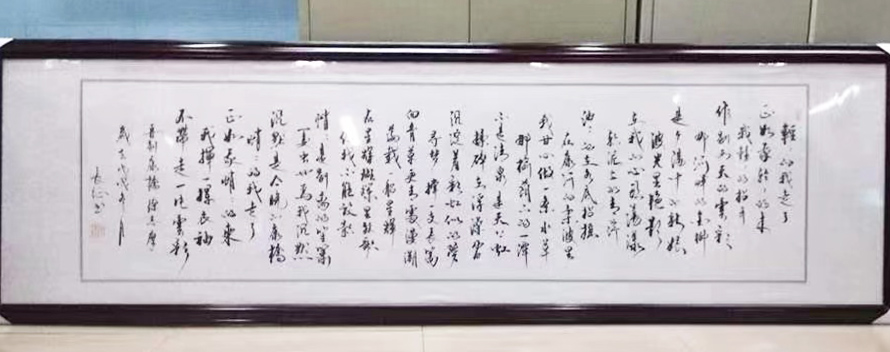 轻〻的我走了
正如我轻〻的来
我轻〻的招手
作别西天的云彩
那河畔的金柳
是夕阳中的新娘
波光里的艳影
在我的心头荡漾
软泥上的青荇
油〻的在水底招摇
在康河的柔波里
我甘心做一条水草
那榆荫下的一潭
不是清泉是天上虹
揉碎在浮藻间
沉淀着彩虹似的梦
寻梦撑一支长篙
向青草更青处漫溯
满载一船星辉
在星辉斑斓里放歌
但我不能放歌
悄〻是别离的笙箫
夏虫也为我沉默
沉默是今晚的康桥
悄〻的我走了
正如我悄〻的来
我挥一挥衣袖
不带走一片云彩
再别康桥徐志摩
岁在戊戌年月
书